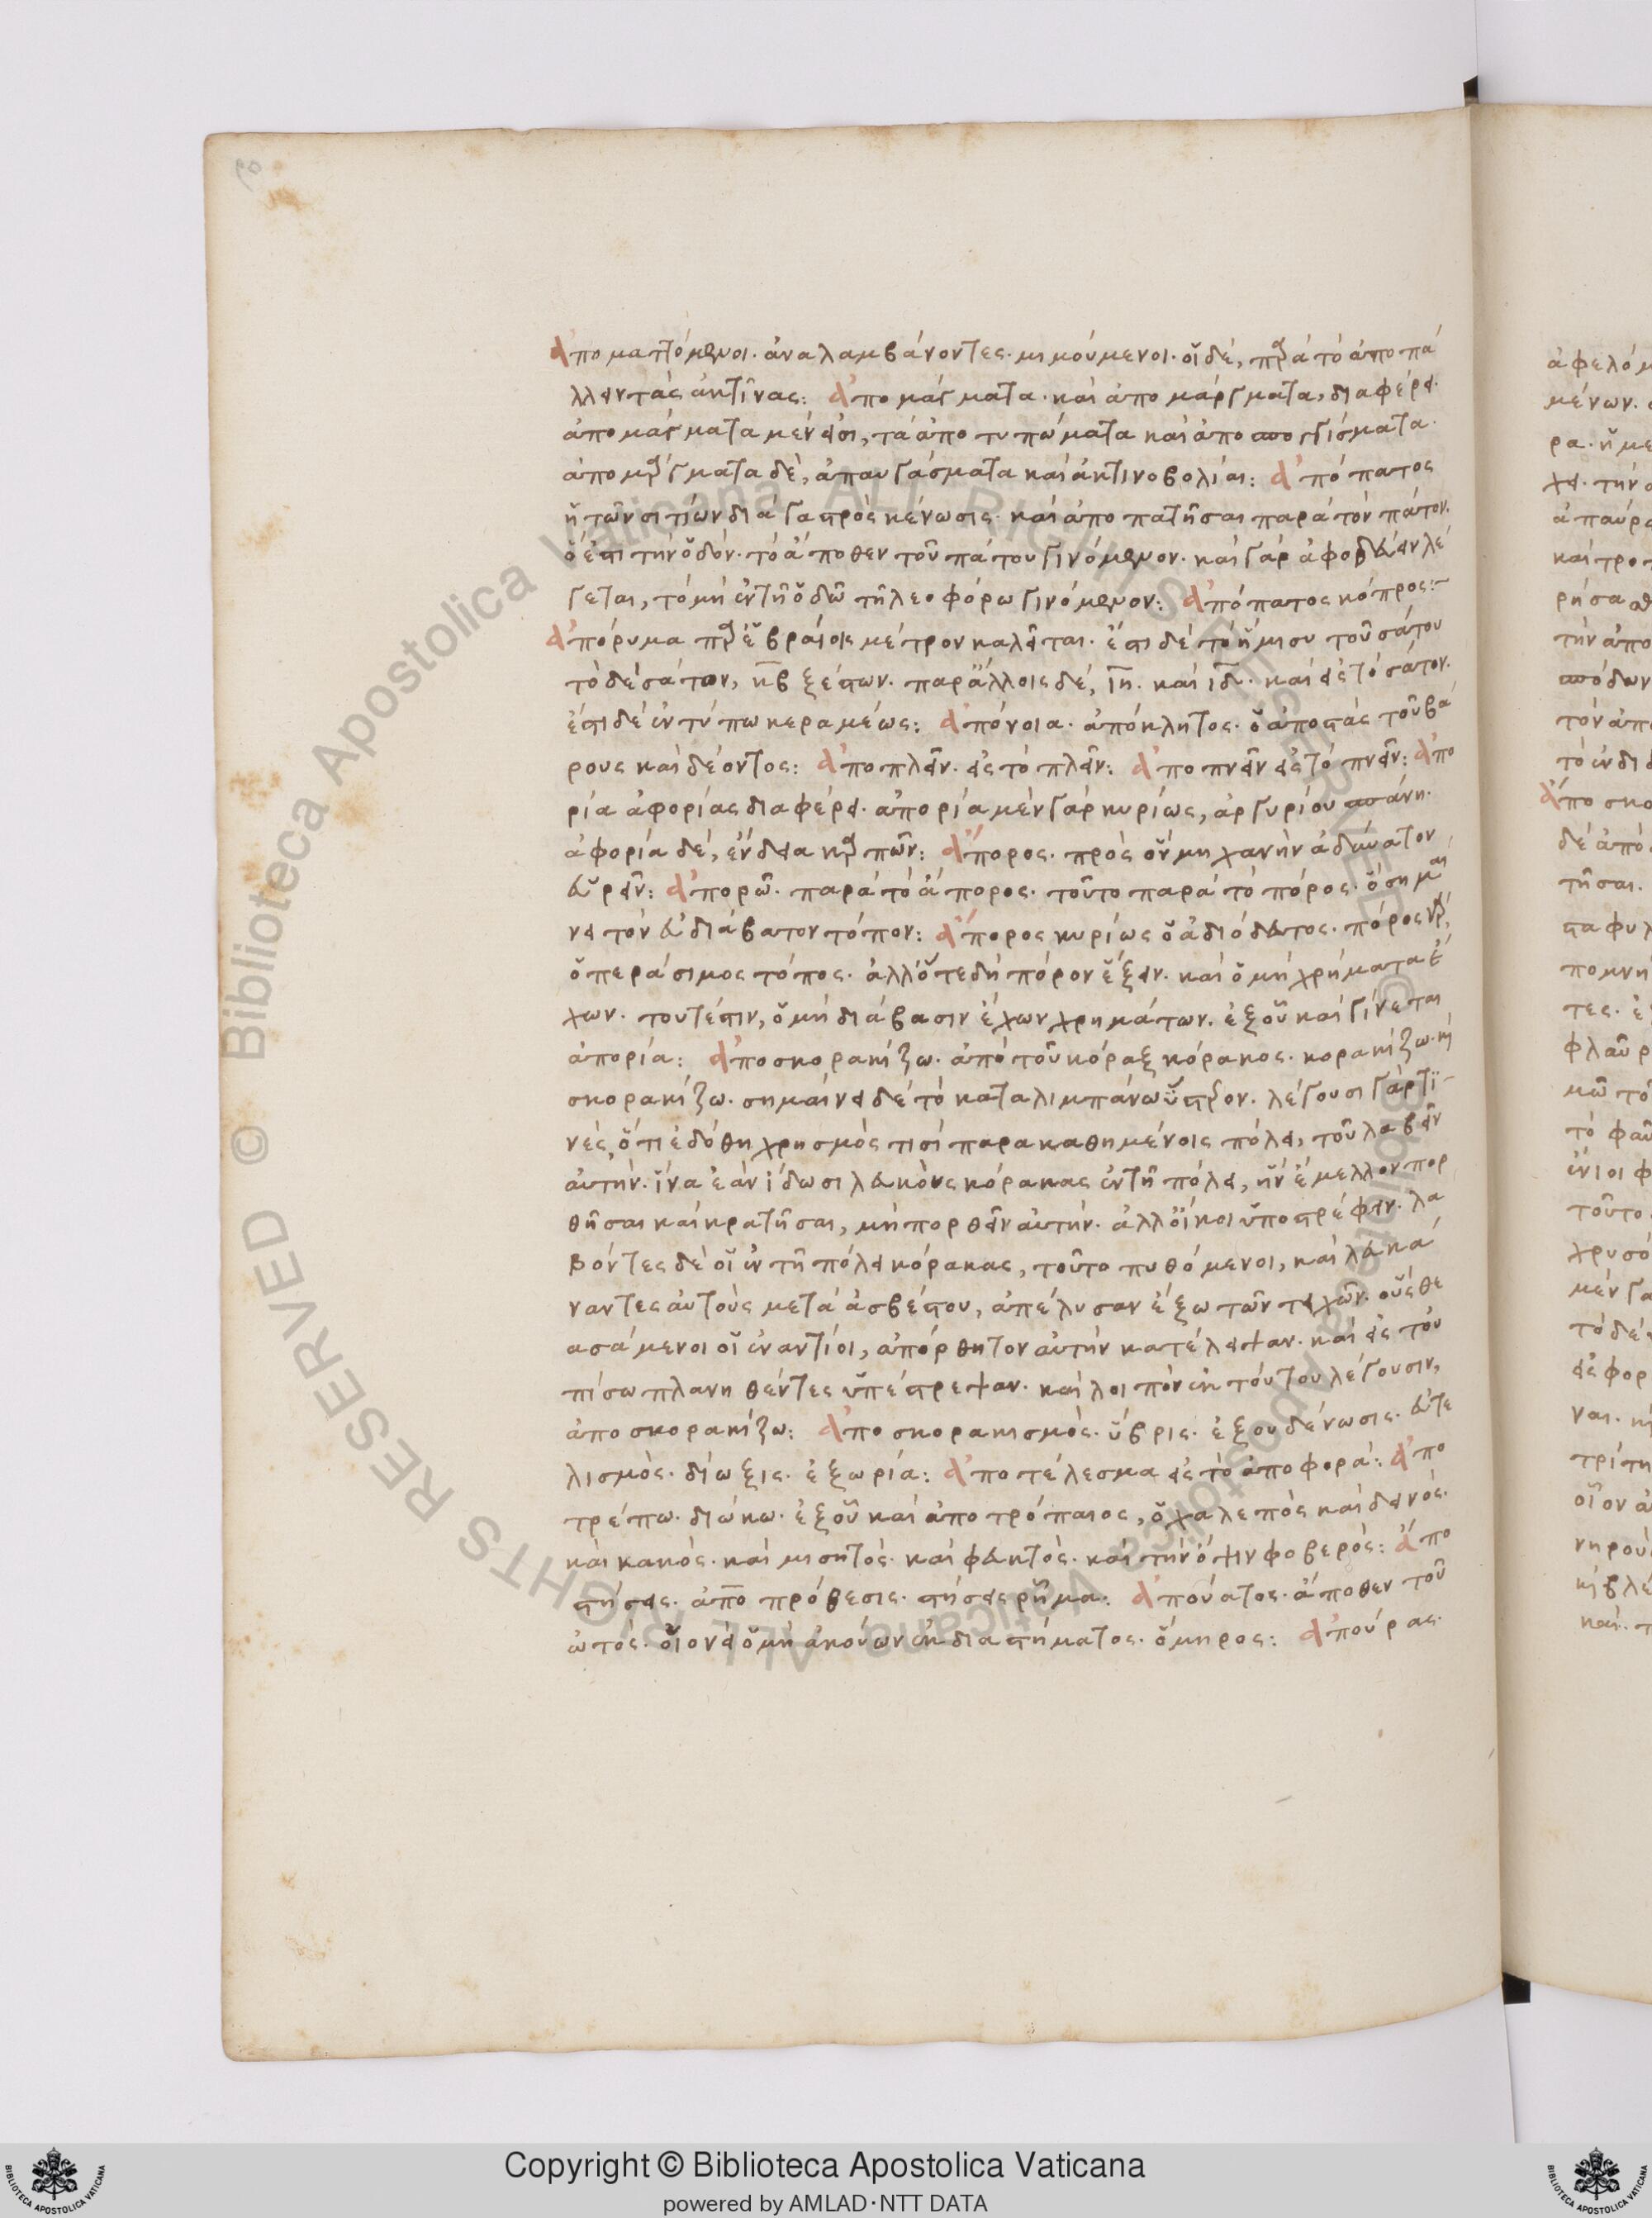 ἀποματτόμενοι· ἀναλαμβάνοντες· μιμούμενοι· οἱ δέ, παρὰ τὸ ἀποπά
λλειν τὰς ἀκτῖνας: ἀπομάγματα· καὶ ἀπομάργματα, διαφέρει·
ἀπομάγματα μέν εἰσι, τὰ ἀποτυπώματα καὶ ἀποσπογγίσματα·
δὲ, ἀπαυγάσματα καὶ ἀκτινοβολίαι: ἀπόπατος
ἡ τῶν σιτίων διὰ γαστρὸς κένωσις· καὶ ἀποπατῆσαι παρὰ τὸν πάτον·
ὅ ἐστι τὴν ὁδόν· τὸ ἄποθεν τοῦ πάτου γινόμενον· καὶ γὰρ ἀφοδεύειν λέ
γεται, τὸ μὴ ἐν τῇ ὁδῷ τῇ λεοφόρω γινόμενον: ἀπόπατος κόπρος:
ἀπόρυμα παρ' ἑβραίοις μέτρον καλεῖται· ἔστι δὲ τὸ ἥμισυ τοῦ σάτου
τὸ δὲ σάτον, κβ ξεστῶν· παρ' ἄλλοις δέ, ιη· καὶ ιδ· καὶ εἰς τὸ σάτον·
ἔστι δὲ ἐν τύπω κεραμέως: ἀπόνοια· ἀπόκλητος· ὁ ἀποστὰς τοῦ βά
ρους καὶ δέοντος: ἀποπλεῖν· εἰς τὸ πλεῖν: ἀποπνεῖν εἰς τὸ πνεῖν: ἀπο
ρία ἀφορίας διαφέρει· ἀπορία μὲν γὰρ κυρίως, ἀργυρίου σπάνη·
ἀφορία δέ, ἔνδεια καρπῶν: ἄπορος· πρὸς ὃν μηχανὴν ἀδύνατον
εὑρεῖν: ἀπορῶ· παρὰ τὸ ἄπορος· τοῦτο παρὰ τὸ πόρος· ὃ σημαί
νει τὸν εὐδιάβατον τόπον: ἄπορος κυρίως ὁ ἀδιόδευτος· πόρος γάρ,
ὁ περάσιμος τόπος· ἀλλ' ὅτε δὴ πόρον ἷξεν· καὶ ὁ μὴ χρήματα ἔ
χων· τουτέστιν, ὁ μὴ διάβασιν ἔχων χρημάτων· ἐξ οὗ καὶ γίνεται
ἀπορία: ἀποσκορακίζω· ἀπὸ τοῦ κόραξ κόρακος· κορακίζω· καὶ
σκορακίζω· σημαίνει δὲ τὸ καταλιμπάνω ὕστερον· λέγουσι γάρ τι
νες, ὅτι ἐδόθη χρησμὸς τισὶ παρακαθημένοις πόλει, τοῦ λαβεῖν
αὐτήν· ἵνα ἐὰν ἴδωσι λευκοὺς κόρακας ἐν τῇ πόλει, ἣν ἔμελλον πορ
θῆσαι καὶ κρατῆσαι, μὴ πορθεῖν αὐτήν· ἀλλ' οἴκοι ὑποστρέφειν· λα
βόντες δὲ οἱ ἐν τῇ πόλει κόρακας, τοῦτο πυθόμενοι, καὶ λευκά
ναντες αὐτοὺς μετὰ ἀσβέστου, ἀπέλυσαν ἔξω τῶν τειχῶν· οὓς θε
ασάμενοι οἱ ἐναντίοι, ἀπόρθητον αὐτὴν κατέλειψαν· καὶ εἰς τὸν
πίσω πλανηθέντες ὑπέστρεψαν· καὶ λοιπὸν ἐκ τούτου λέγουσιν,
ἀποσκορακίζω: ἀποσκορακισμός· ὕβρις· ἐξουδένωσις· εὐτε
λισμὸς· δίωξις· ἐξωρία: ἀποτέλεσμα εἰς τὸ ἀποφορά: ἀπο
τρέπω· διώκω· ἐξ οὗ καὶ ἀποτρόπαιος, ὁ χαλεπὸς καὶ δεινός·
καὶ κακός· καὶ μισητός· καὶ φευκτὸς· καὶ τὴν ὄψιν φοβερὸς: ἀπο
στήσεις· ἀπο πρόθεσις· στήσεις ῥῆμα: ἀπούατος· ἄποθεν τοῦ
ὠτός· οἱονεὶ ὁ μὴ ἀκούων ἐκ διαστήματος· ὅμηρος: ἀπούρας·
Copyright © Biblioteca Apostolica Vaticana
powered by AMLAD·NTT DATA